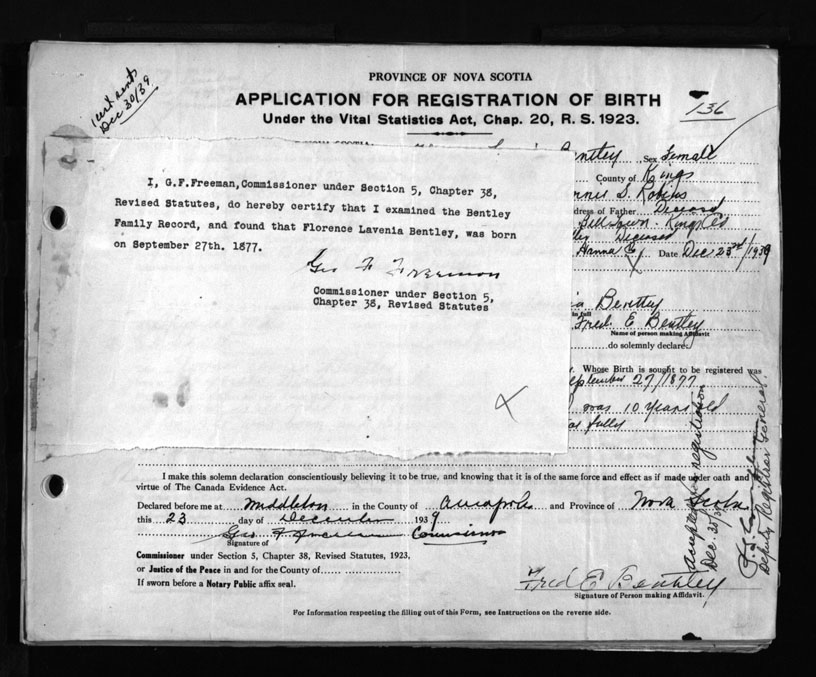 1 cert. sent
Dec 30/39
PROVINCE OF NOVA SCOTIA
APPLICATION FOR REGISTRATION OF BIRTH
136
Under the Vital Statistics Act, Chap. 20, R. S. 1923.
Bentley Sex Female
County of Kings
I, G.F.Freeman,Commissioner under Section 5, Chapter 38,
Revised Statutes, do hereby certify that I examined the Bentley
Family Record, and found that Florence Lavenia Bentley, was born
on September 27th. 1877.
Geo F Freeman
Commissioner under Section 5,
Chapter 38, Revised Statutes
dress of Father Deceased
Kings Co
Deceased
Hanna E. Date Dec 23rd/1939
Bentley
in full
Fred E Bentley
Name of person making Affidavit
do solemnly declare:
Whose Birth is sought to be registered was
September 27/1877
was 10 years old
as fully
I make this solemn declaration conscientiously believing it to be true, and knowing that it is of the same force and effect as if made under oath and
virtue of The Canada Evidence Act.
Declared before me at Middleton in the County of Annapolis and Province of Nova Scotia
this 23 day of December 1939
Geo F Freeman Commissioner
Signature of
Commissioner under Section 5, Chapter 38, Revised Statutes, 1923,
or Justice of the Peace in and for the County of
If sworn before a Notary Public affix seal.
Fred E Bentley
Signature of Person making Affidavit.
For Information respecting the filling out of this Form, see Instructions on the reverse side.
registration
Dec.
Deputy Registrar General.